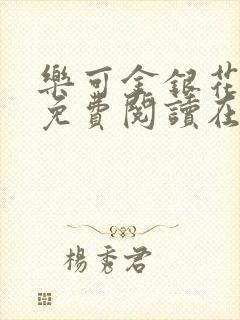 樂可金銀花
免費閱讀在
楊秀君